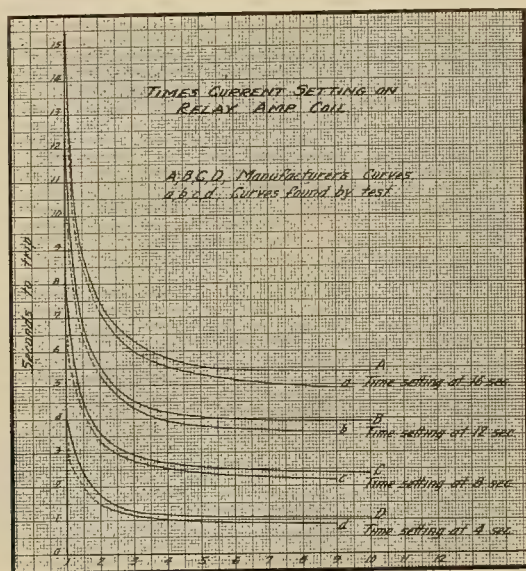 TIMES CURRENT SETTING ON
RELAY AMP COIL
A, B, C, D, Manufacturers Curves
a b c d Curves found by test
Seconds to trip
15
14
13
12
11
10
9
8
7
6
5
4
3
2
1
0
A
a Time setting at 16 sec.
B
b Time setting at 12 sec
C
c Time setting at 8 sec.
D
d Time setting at 4 sec.
1 2 3 4 5 6 7 8 9 10 11 12